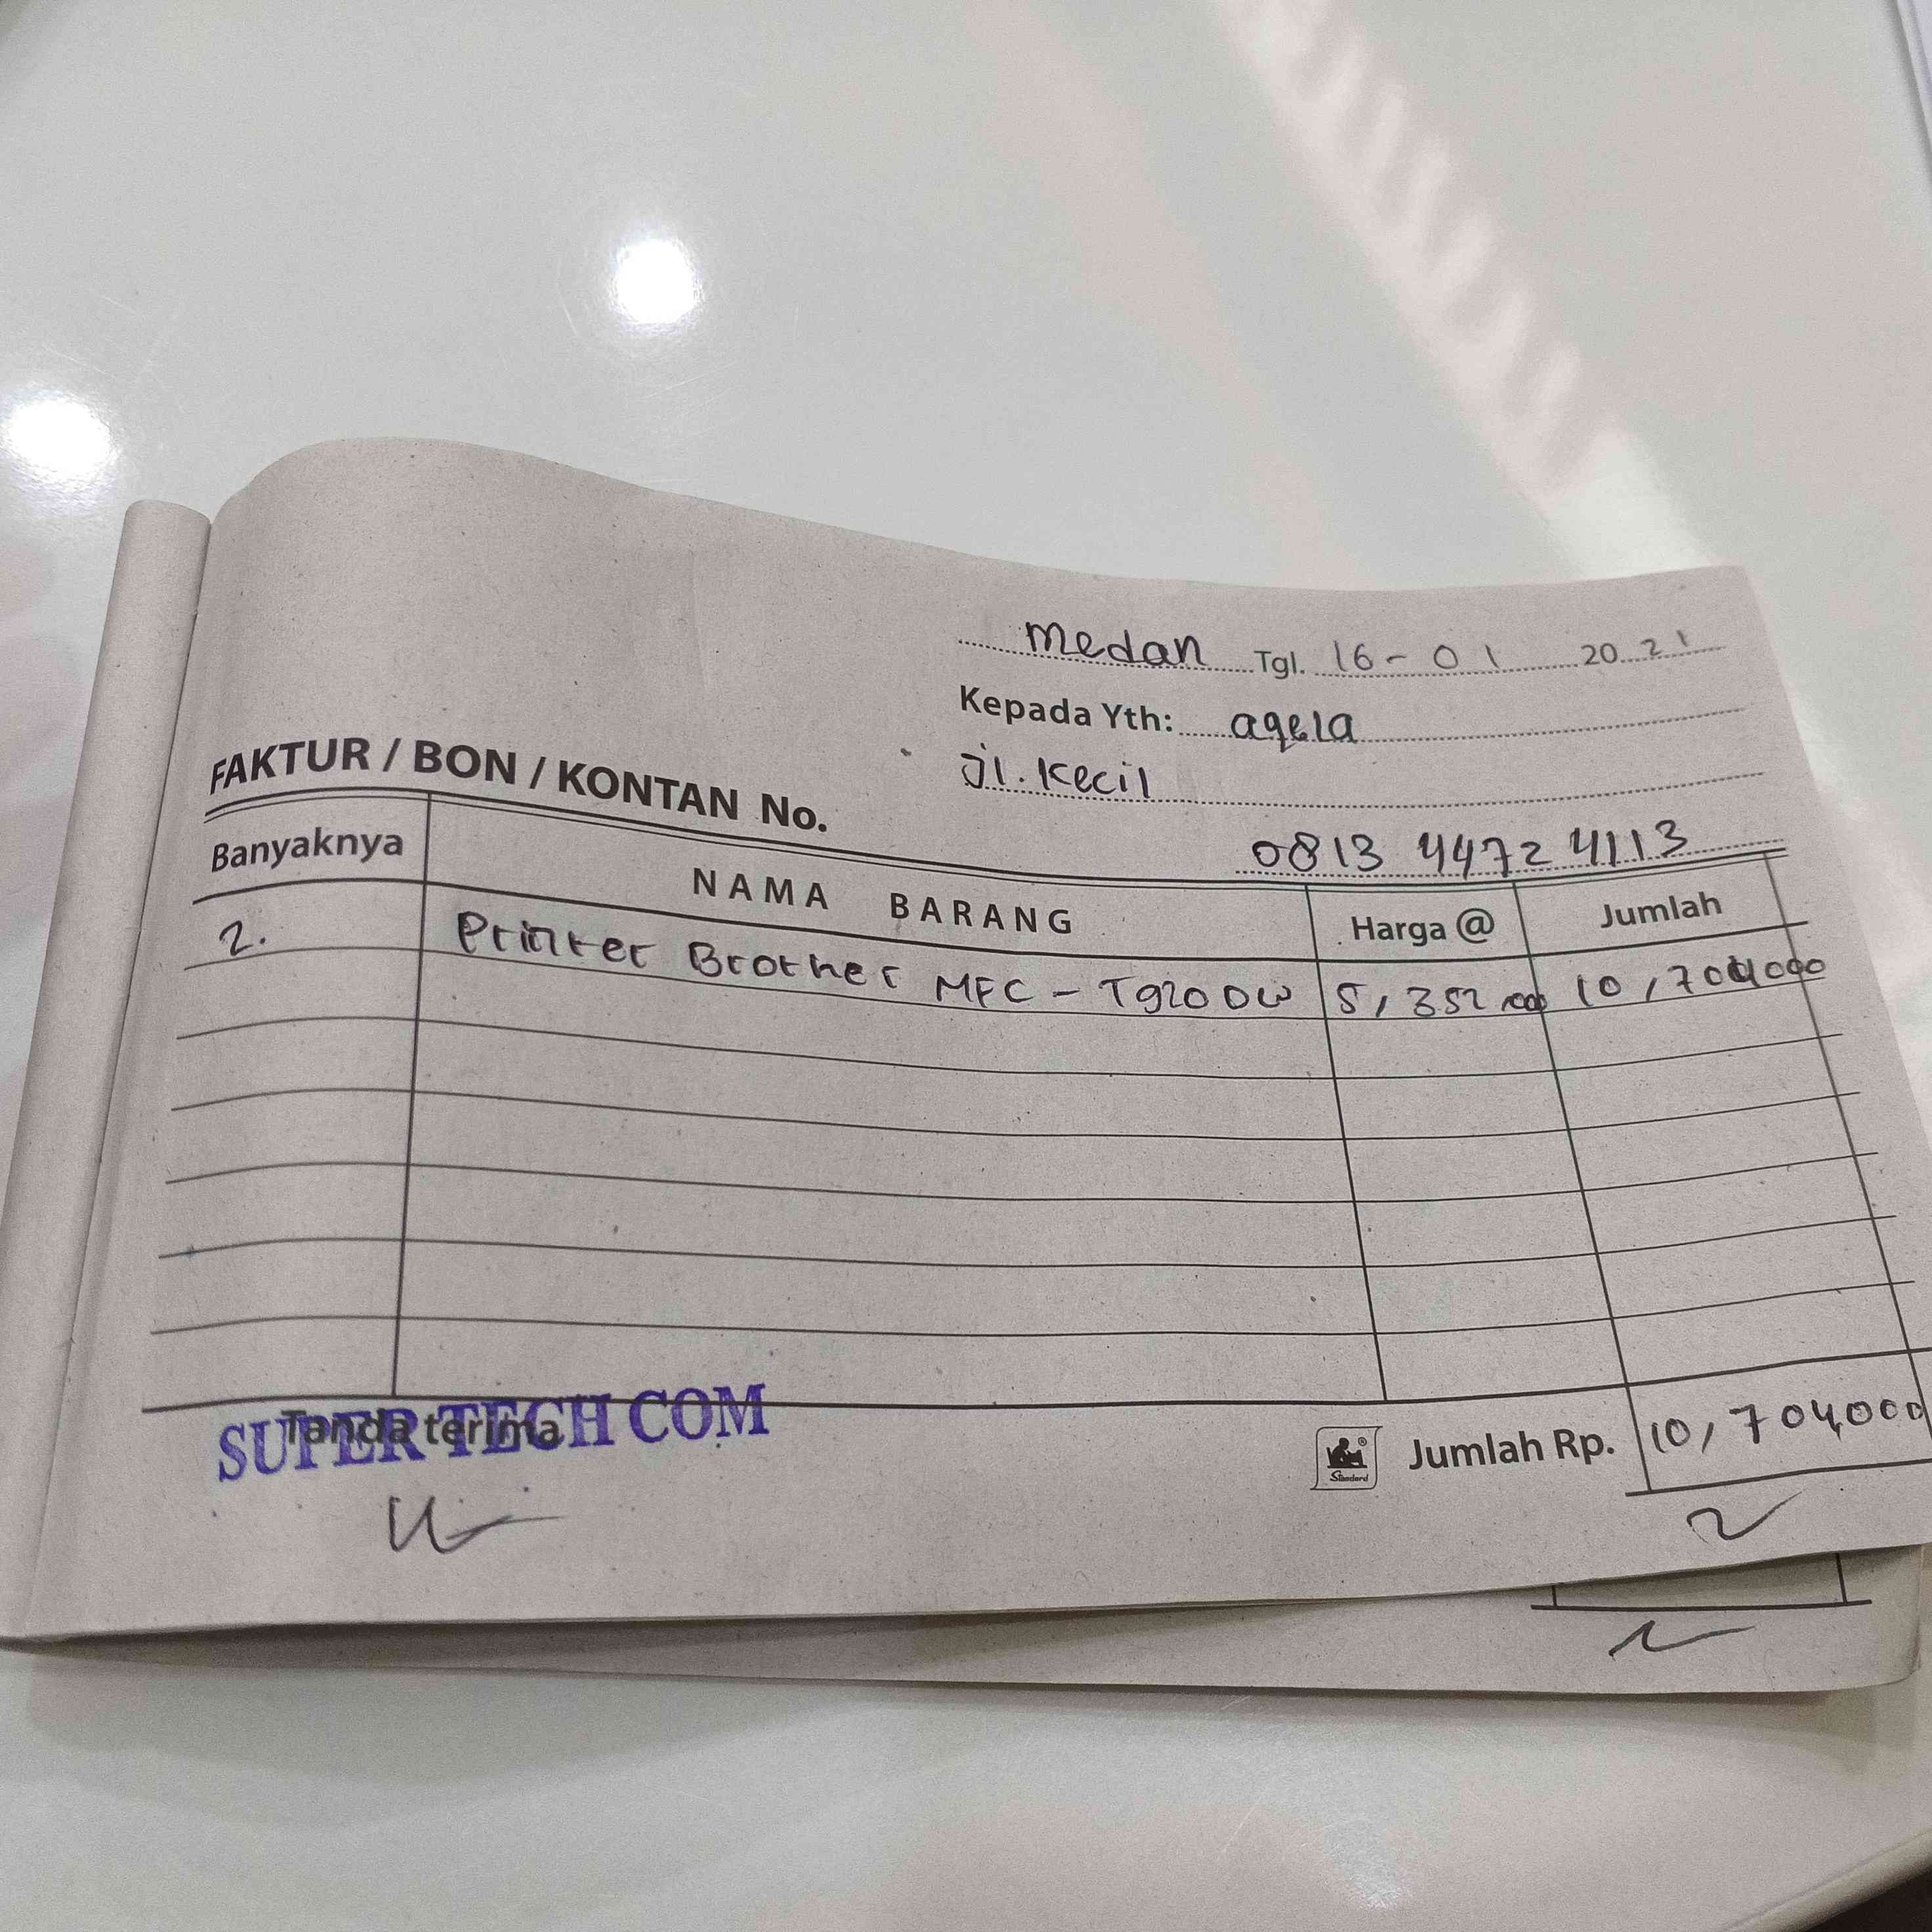 medan Tgl. 16-01 2021
Kepada Yth: aqela
jl. Kecil
0813 4472 4113
FAKTUR / BON / KONTAN No.
Banyaknya NAMA BARANG Harga @ Jumlah
2. Printer Brother MFC - T920DW 5,352,000 10,704,000
Tanda terima
SUPER TECH COM
Standard
Jumlah Rp. 10,704,000